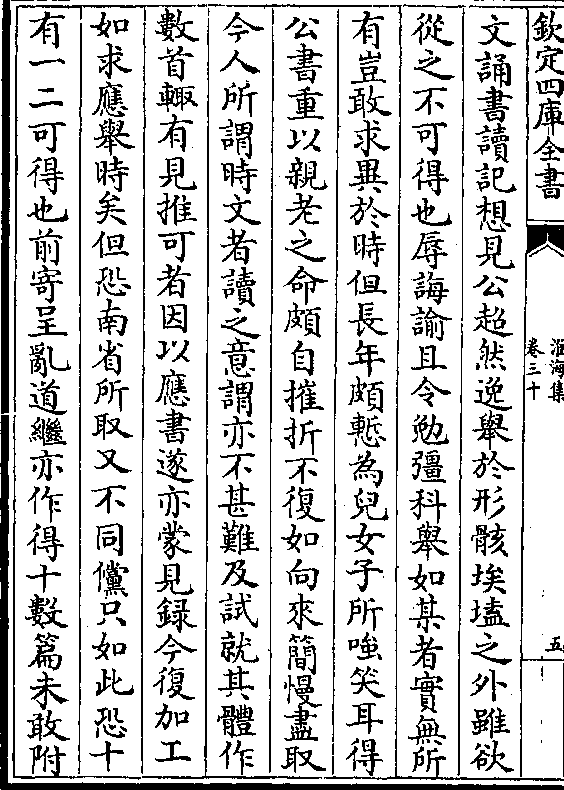 欽定四庫全書
淮海集
卷三十
五
文誦書讀記想見公超然逸舉於形骸埃壒之外雖欲
從之不可得也辱誨諭且令勉彊科舉如某者實無所
有豈敢求異於時但長年頗慙為兒女子所嗤笑耳得
公書重以親老之命頗自摧折不復如向來簡慢盡取
今人所謂時文者讀之意謂亦不甚難及試就其體作
數首輙有見推可者因以應書遂亦蒙見録今復加工
如求應舉時矣但恐南省所取又不同儻只如此恐十
有一二可得也前寄呈亂道繼亦作得十數篇未敢附